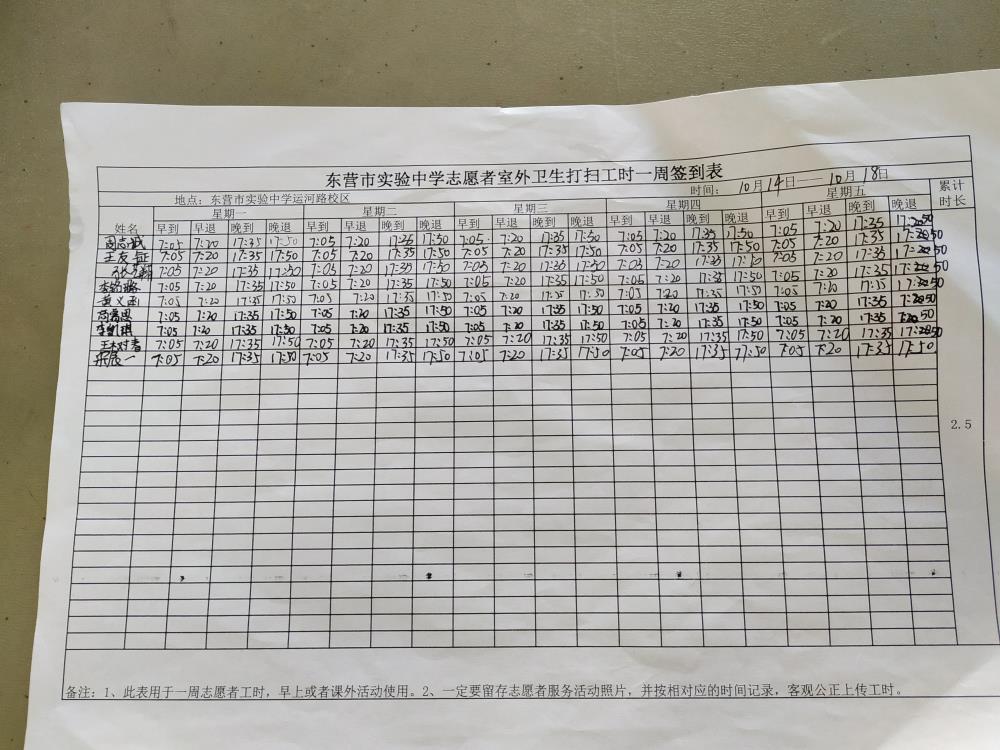 东营市实验中学志愿者室外卫生打扫工时一周签到表
地点：东营市实验中学运河路校区 时间：10月14日——10月18日
姓名 星期一 星期二 星期三 星期四 星期五 累计时长
早到 早退 晚到 晚退 早到 早退 晚到 晚退 早到 早退 晚到 晚退 早到 早退 晚到 晚退 早到 早退 晚到 晚退
7:05 7:20 17:35 17:50 7:05 7:20 17:35 17:50 7:05 7:20 17:35 17:50 7:05 7:20 17:35 17:50 7:05 7:20 17:35 17:50
王友钲 7:05 7:20 17:35 17:50 7:05 7:20 17:35 17:50 7:05 7:20 17:35 17:50 7:05 7:20 17:35 17:50 7:05 7:20 17:35 17:50
7:05 7:20 17:35 17:50 7:05 7:20 17:35 17:50 7:05 7:20 17:35 17:50 7:05 7:20 17:35 7:05 7:20 17:35 17:50
7:05 7:20 17:35 17:50 7:05 7:20 17:35 17:50 7:05 7:20 17:35 17:50 7:05 7:20 17:35 17:50 7:05 7:20 17:35 17:50
黄义函 7:05 7:20 17:35 17:50 7:05 7:20 17:35 17:50 7:05 7:20 17:35 17:50 7:05 7:20 17:35 17:50 7:05 7:20 17:35 17:50
7:05 7:20 17:35 17:50 7:05 7:20 17:35 17:50 7:05 7:20 17:35 17:50 7:05 7:20 17:35 17:50 7:05 7:20 17:35
7:05 7:20 17:35 17:50 7:05 7:20 17:35 17:50 7:05 7:20 17:35 17:50 7:05 7:20 17:35 17:50 7:05 7:20 17:35
7:05 7:20 17:35 17:50 7:05 7:20 17:35 17:50 7:05 7:20 17:35 17:50 7:05 7:20 17:35 17:50 7:05 7:20 17:35 17:50
7:05 7:20 17:35 17:50 7:05 7:20 17:35 17:50 7:05 7:20 17:35 17:50 7:05 7:20 17:35 17:50 7:05 7:20 17:35 17:50
2.5
备注：1、此表用于一周志愿者工时，早上或者课外活动使用。2、一定要留存志愿者服务活动照片，并按相对应的时间记录，客观公正上传工时。